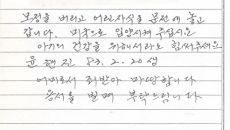 모정을 버리고 어린자식을 문전에 놓고
갑니다. 미국으로 입양시켜 주십시요
아기의 건강을 위해서라도 힘써주세요
윤현진 83. 2. 20생
어미로서 죄받아 마땅합니다
용서를 빌며 부탁드립니다